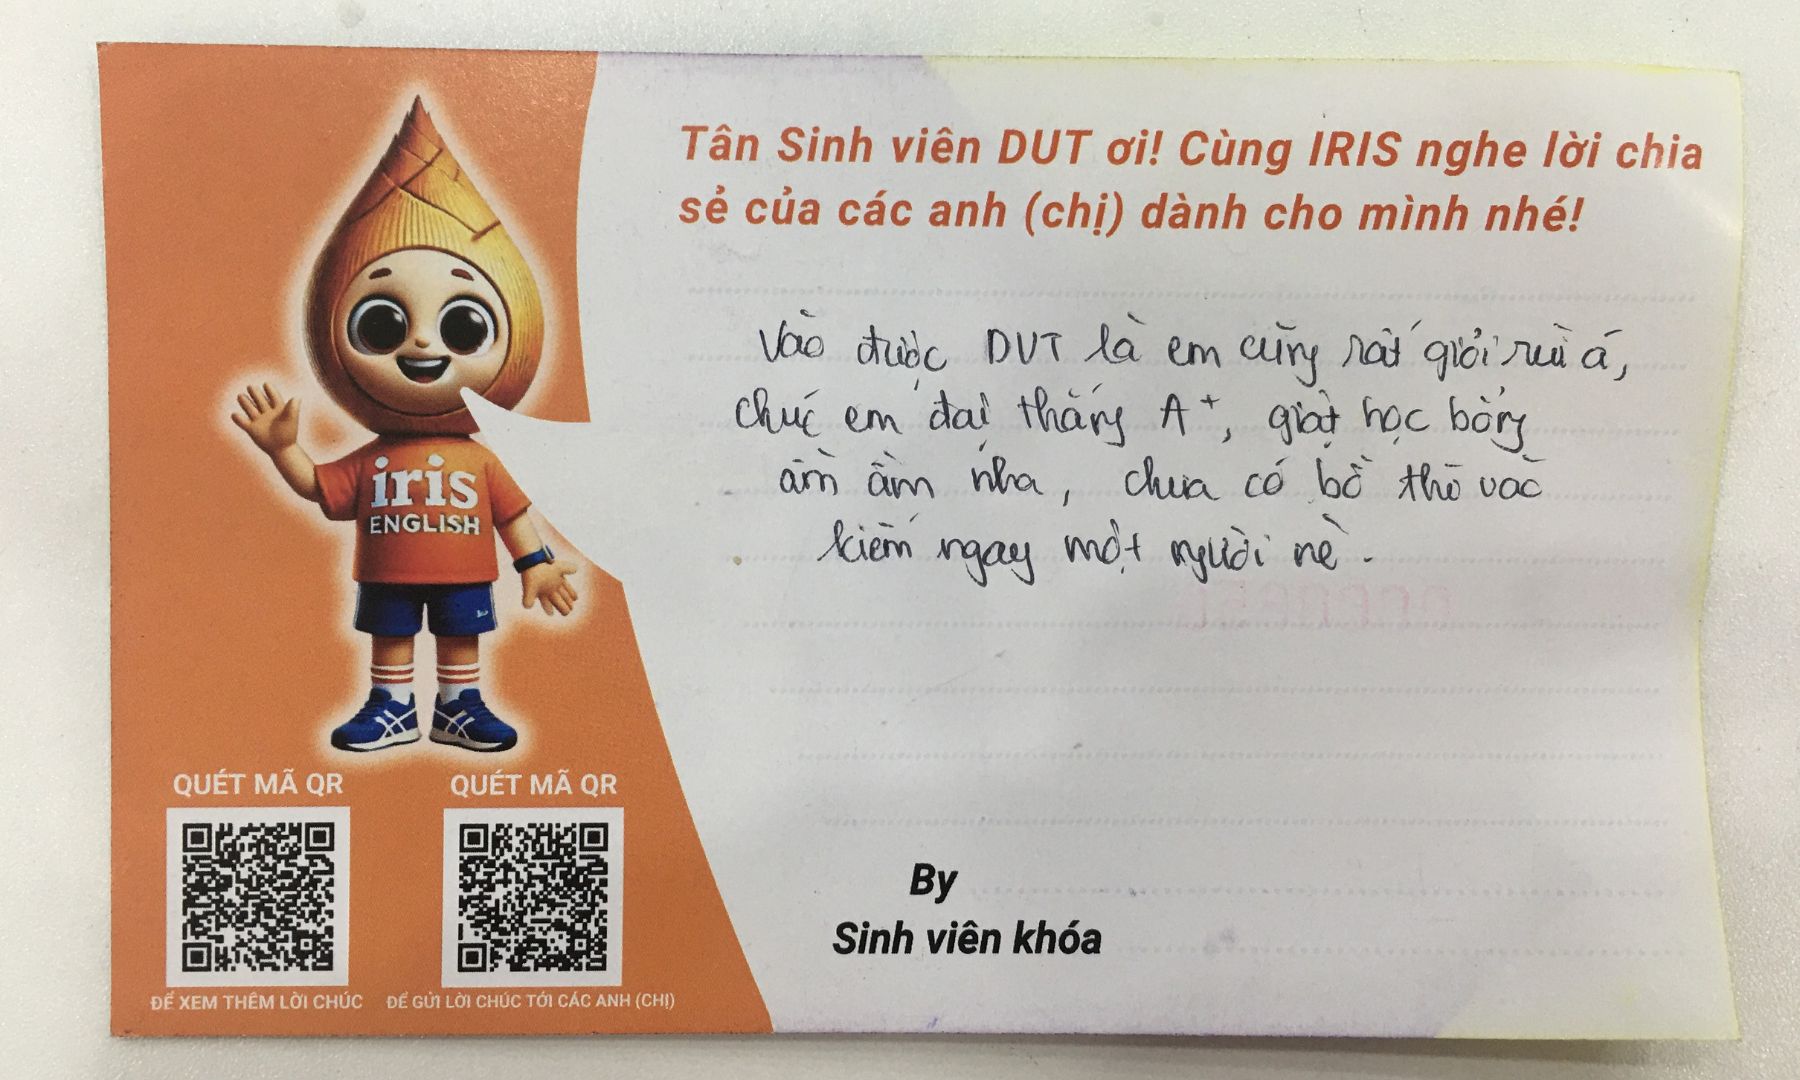 Tân Sinh viên DUT ơi! Cùng IRIS nghe lời chia
sẻ của các anh (chị) dành cho mình nhé!
Vào được DUT là em cũng rất giỏi rùi á,
chúc em đại thắng A+, giật học bổng
ầm ầm nha, chưa có bồ thì vào
kiếm ngay một người nè.
iris
ENGLISH
QUÉT MÃ QR
QUÉT MÃ QR
ĐỂ XEM THÊM LỜI CHÚC
ĐỂ GỬI LỜI CHÚC TỚI CÁC ANH (CHỊ)
By
Sinh viên khóa